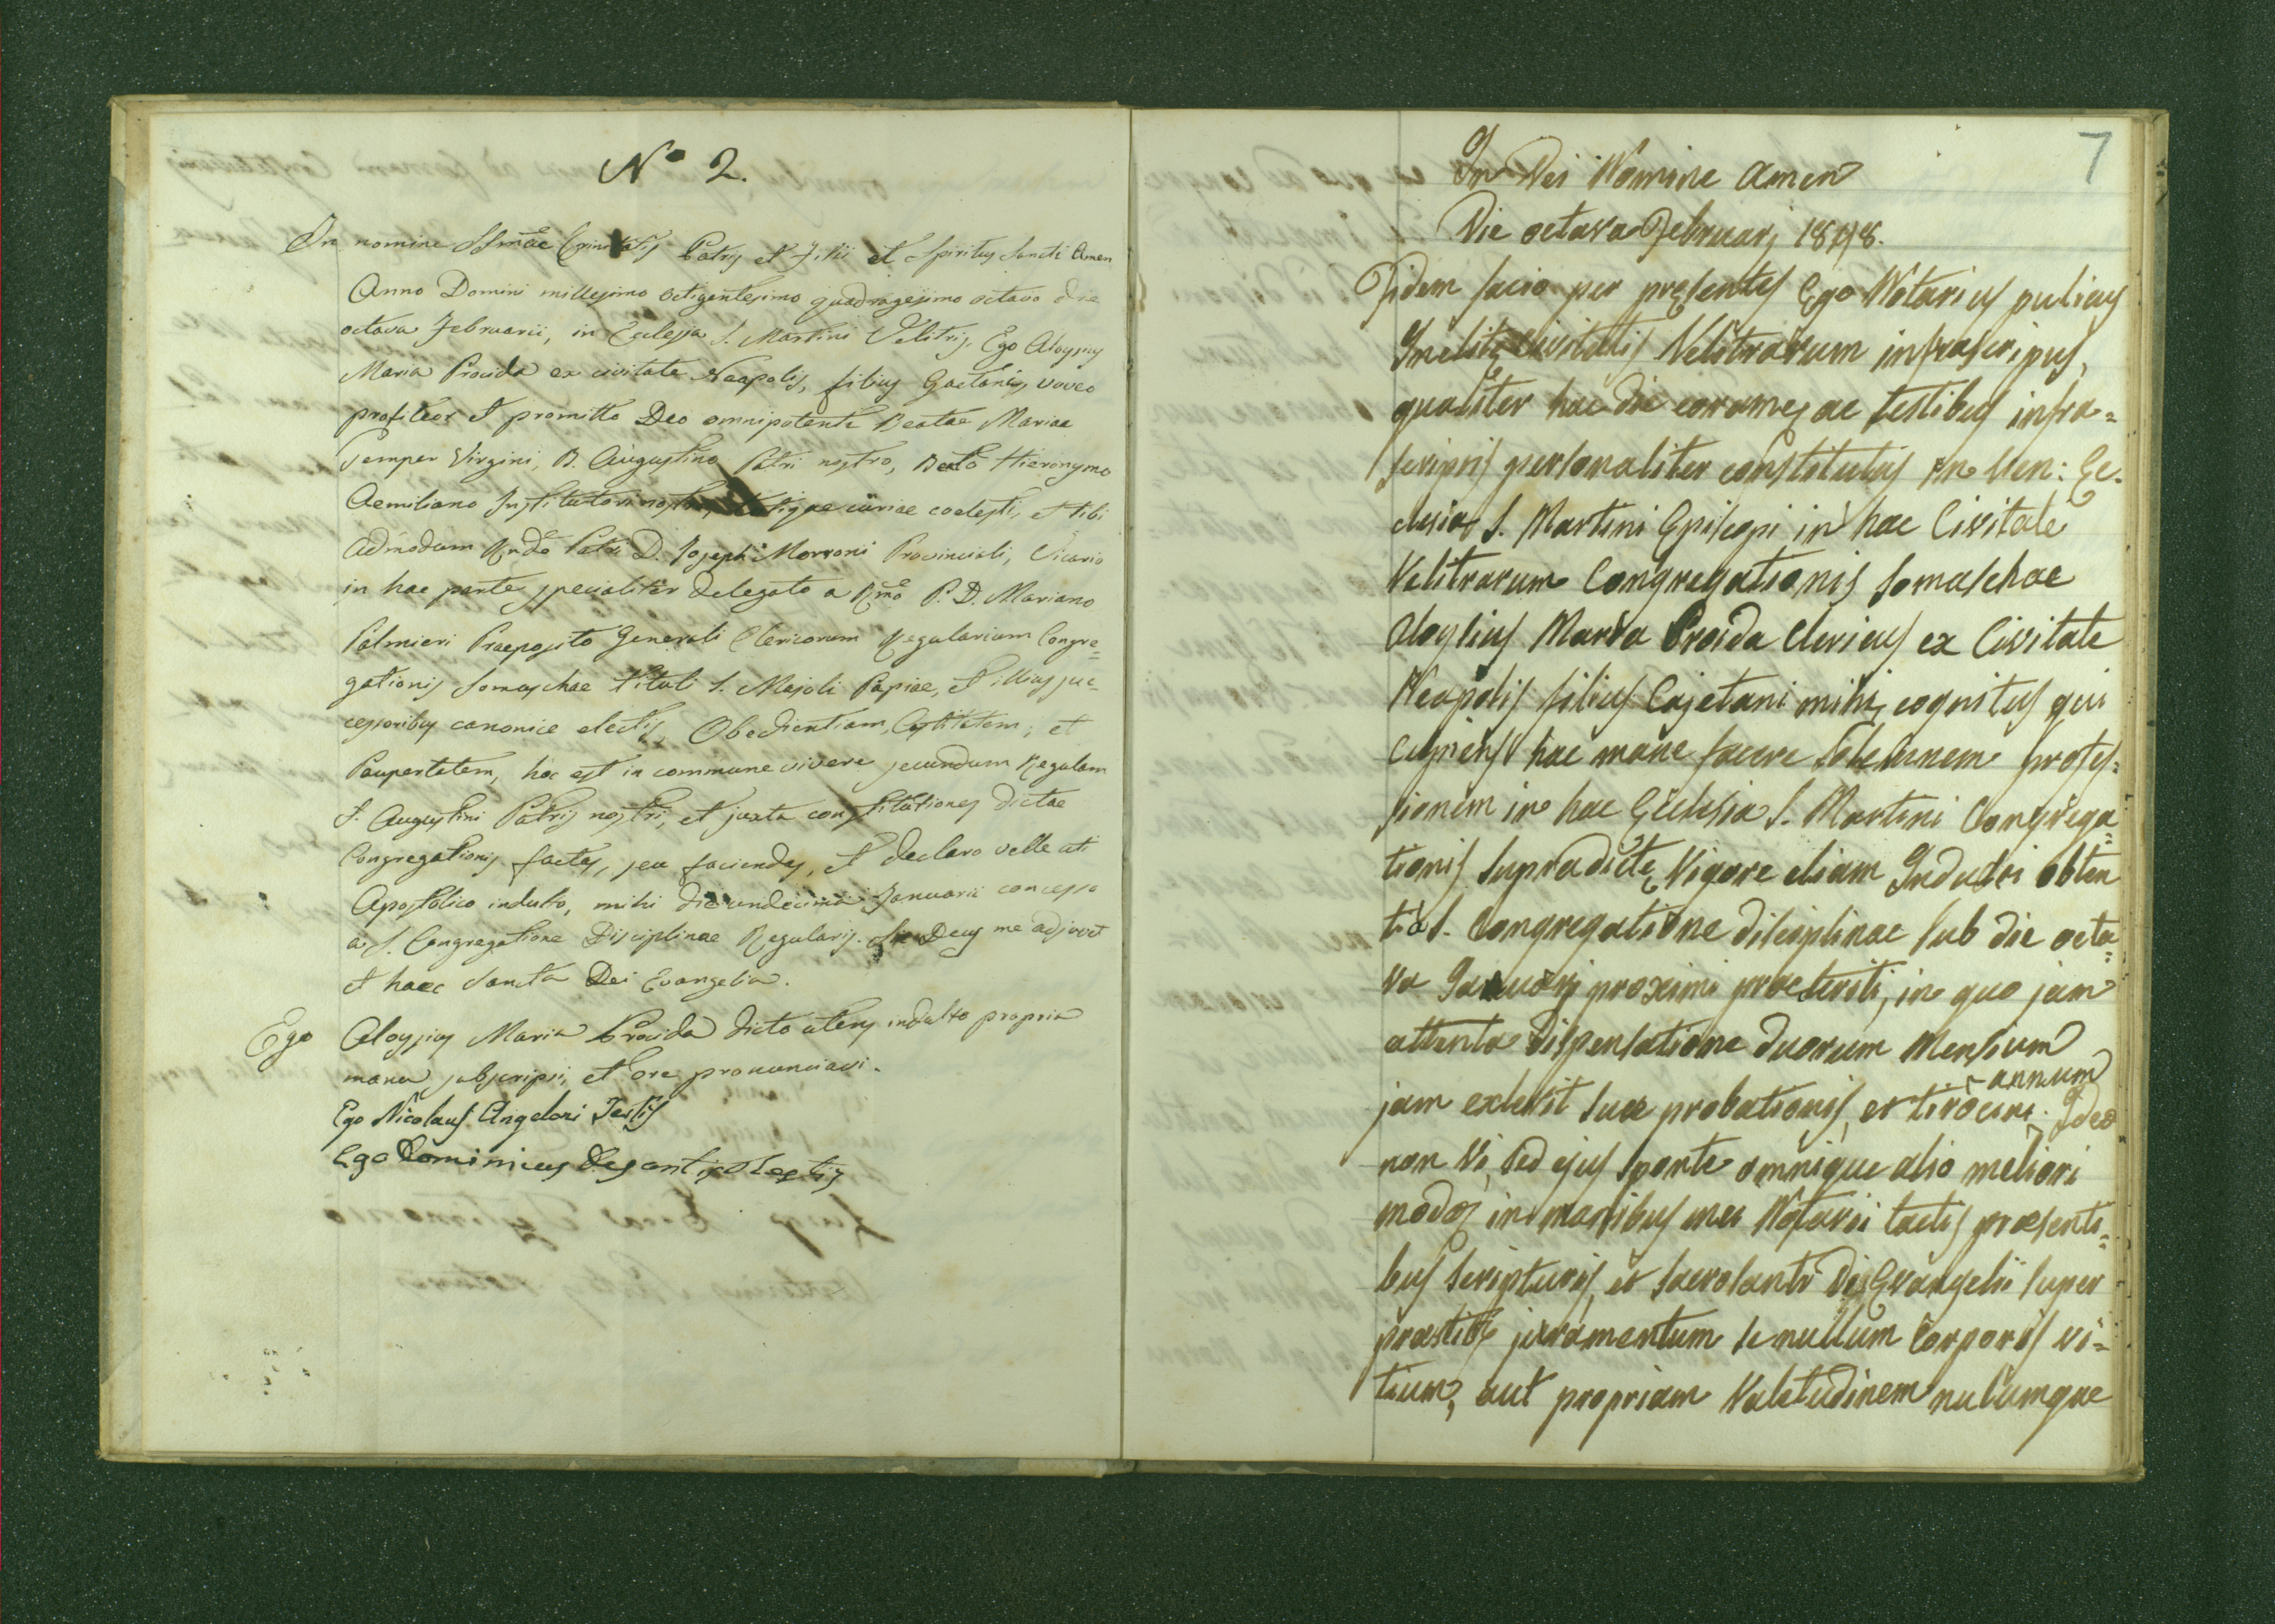 Nº 2.
In nomine SSmae Trinitatis Patris et Filii et Spiritus Sancti Amen
Anno Domini millesimo octigentesimo quadragesimo octavo die
octava Februarii, in Ecclesia S. Martini Velitris, Ego Aloysius
Maria Procida ex civitate Neapolis, filius Gaetanis, voveo
profiteor et promitto Deo omnipotenti Beatae Mariae
semper Virgini, B. Augustino Patri nostro, Beato Hieronymo
Aemiliano Institutori nostro, curiae coelesti, et tibi
Admodum Rndo Patri D. Joseph Morroni Provinciali, Vicario
in hac parte specialiter delegato a Rmo P. D. Mariano
Palmieri Praeposito Generali Clericorum Regularium Congre=
gationis Somaschae tituli S. Majoli Papiae, et illius suc=
cessoribus canonice electis, Obedientiam, Castitatem, et
Paupertatem, hoc est in commune vivere secundum Regulam
S. Augustini Patris nostri, et juxta constitutiones dictae
Congregationis factas, seu faciendas, et declaro velle uti
Apostolico indulto, mihi die undecima Januarii concesso
a S. Congregatione Disciplinae Regularis. Sic Deus me adjuvet
et haec Sancta Dei Evangelia.
Ego Aloysius Maria Procida dicto utens indulto propria
manu subscripsi, et ore pronunciavi.
Ego Nicolaus Angeloni Testis
Ego Dominicus Desantis Testis
7
In Dei Nomine Amen
Die octava Februarj 1848.
Fidem facio per pręsentes Ego Notarius publicus
Inclitę Civitatis Velitrarum infrascripus,
qualiter hac die coram me, ac testibus infra=
scripris personaliter constitutus in Ven: Ec.
clesia S. Martini Episcopi in hac Civitate
Velitrarum Congregationis Somaschae
Aloysius Maria Procida Clericus ex Civitate
Neapolis filius Cajetani mihi cognitus qui
cupiens hac mane facere solemnem profes=
sionem in hac Ecclesia S. Martini Congrega=
tionis supradictę Vigore etiam Indulti obten
ti a S. Congregatione disciplinae sub die octa=
va Januarj proximi praeteriti, in quo jam
attenta dispensatione duorum Mensium
annum
jam explevit suae probationis, et tirocini. Ideo
non vi, sed ejus sponte omnique alio meliori
modo, in manibus mei Notarii tactis praesenti=
bus scripturis, et sacrosanti Dei Evangelii super
praestitit juramentum se nullum Corporis vi=
tium, aut propriam Valetudinem nullumque